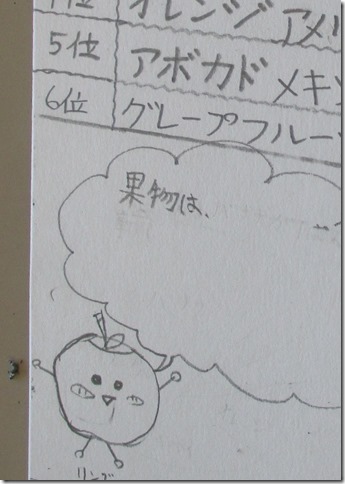 オレンジ アメリ
5位 アボカド メキシ
6位 グレープフルーツ
果物は、
リンゴ